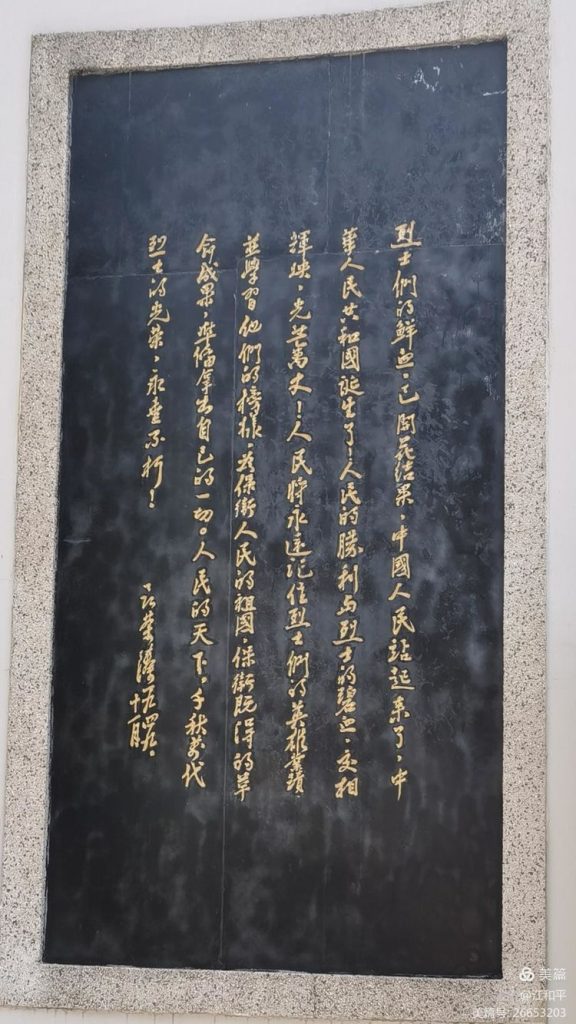 烈士們的鮮血，已開花结果，中國人民站起来了，中
華人民共和國诞生了！人民的勝利与烈士的碧血，交相
輝映，光芒萬丈！人民將永遠记住烈士們的英雄業蹟，
並學習他們的榜樣，为保衛人民的祖國，保衛既得的革
命成果，準俻拿出自己的一切。人民的天下，千秋萬代
烈士的光荣，永垂不朽！
羅荣溱一九四九，
十月
美篇
@江和平
美篇号:26653203